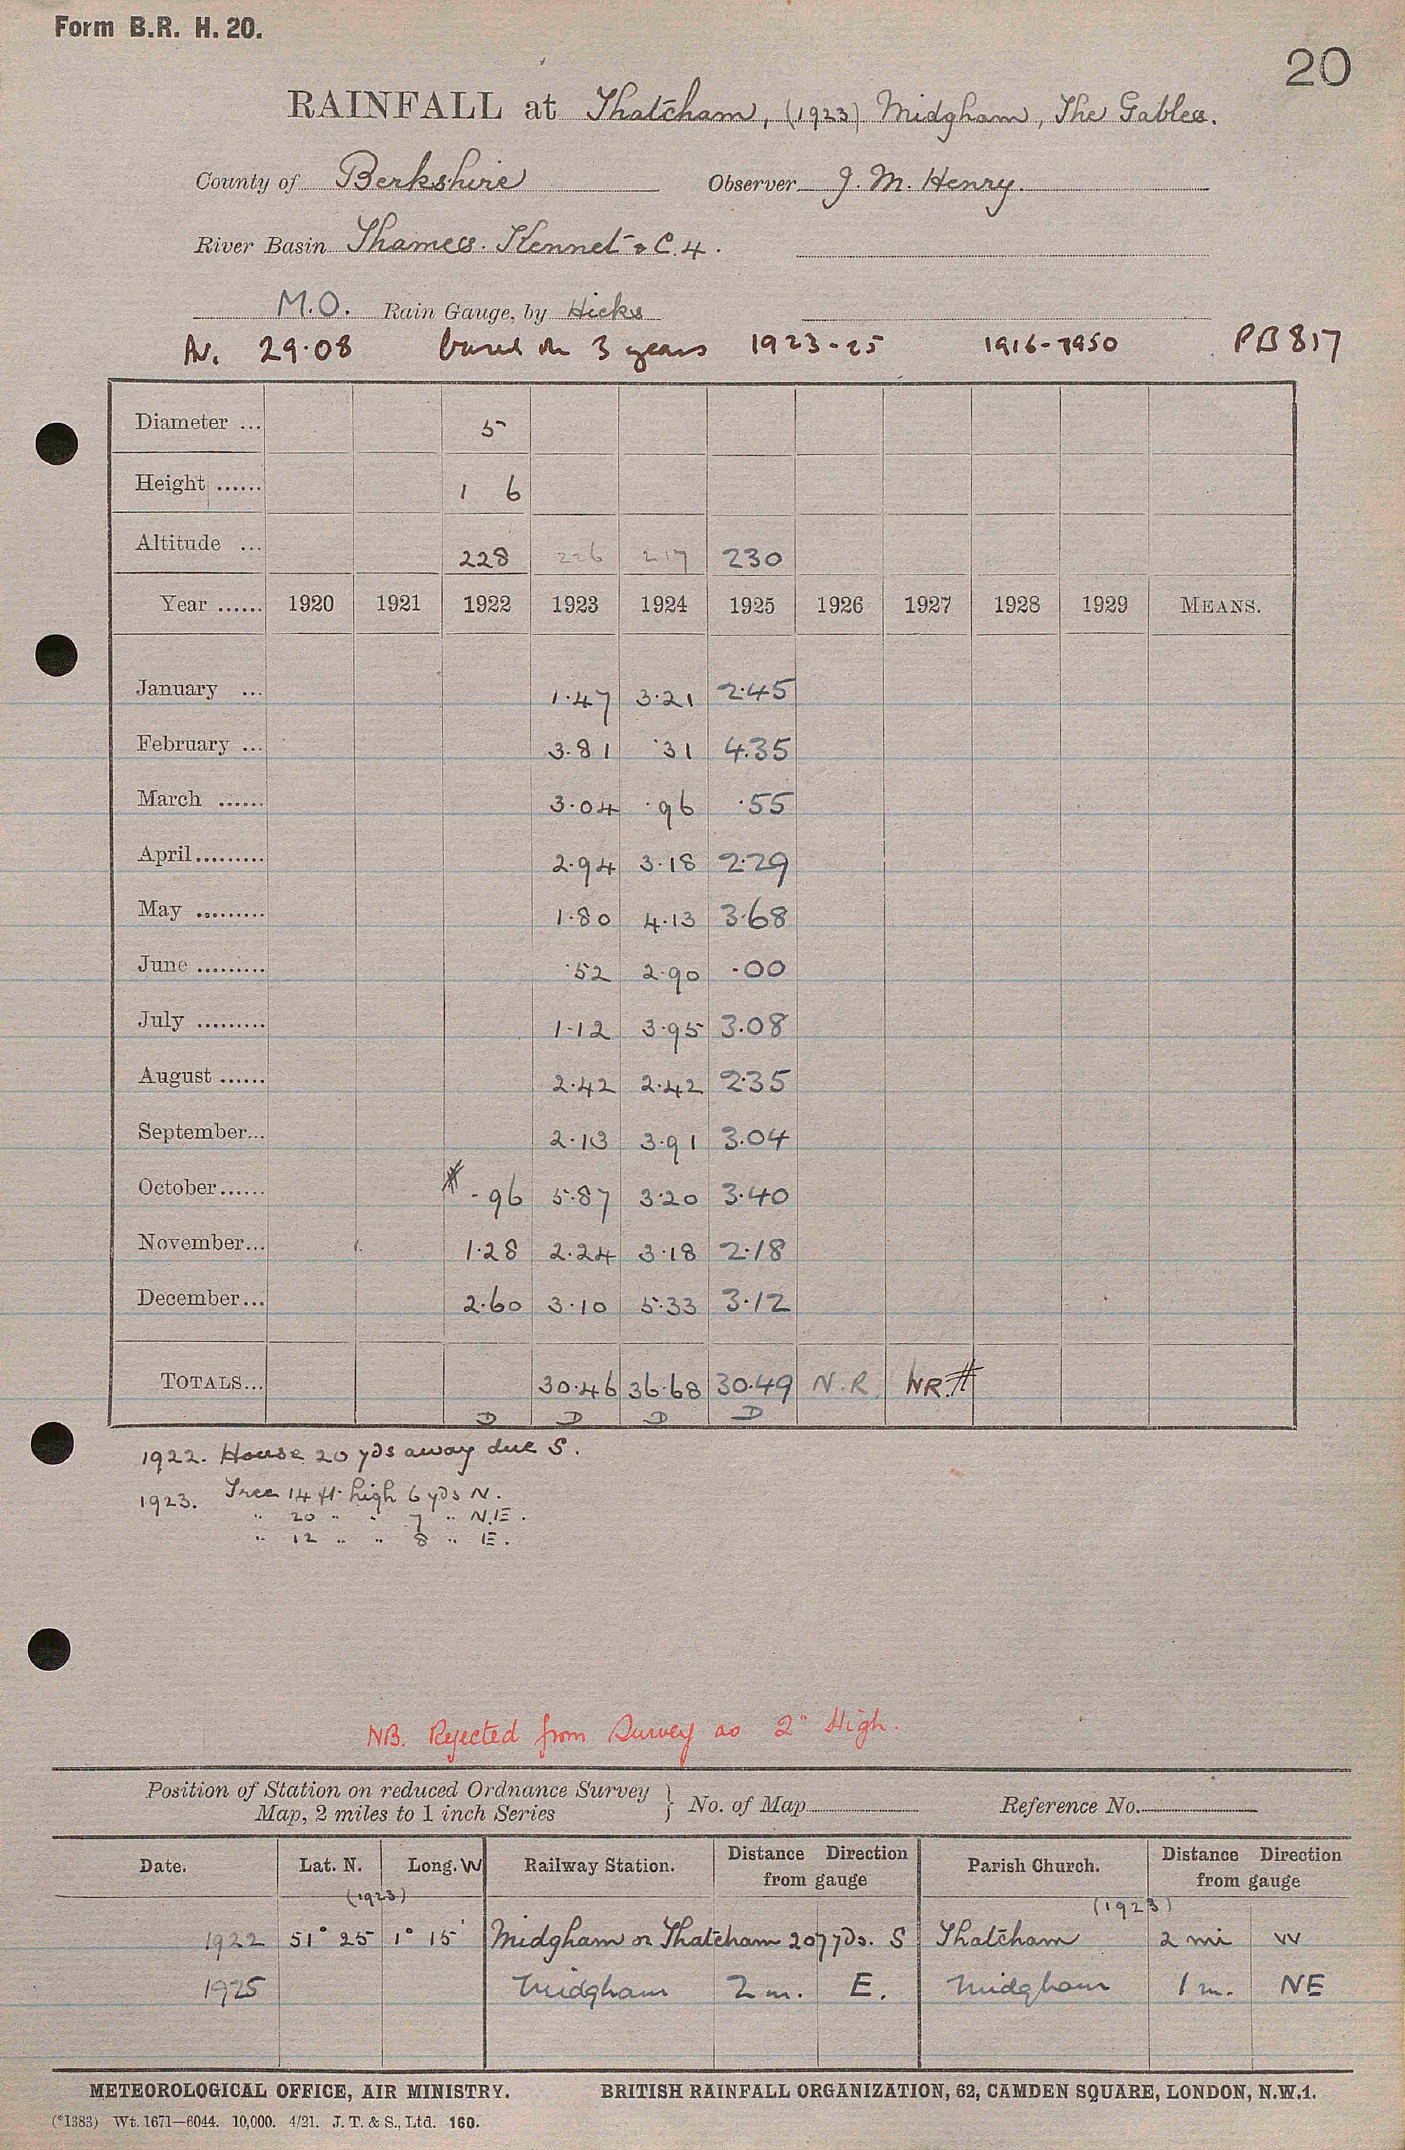 Form B.R. H. 20.
20
RAINFALL at Thatcham, (1923) Midgham, The Gables.
County of Berkshire Observer J. M. Henry.
River Basin Thames. Kennet & C. 4.
M.O. Rain Gauge, by Hicks
Av. 29.08 based on 3 years 1923-25 1916-1950 PB817
Diameter ... 5
Height ...... 1 6
Altitude ... 228 226 217 230
Year ...... 1920 1921 1922 1923 1924 1925 1926 1927 1928 1929 MEANS.
January ... 1.47 3.21 2.45
February ... 3.81 .31 4.35
March ...... 3.04 .96 .55
April......... 2.94 3.18 2.29
May ......... 1.80 4.13 3.68
June ......... .52 2.90 .00
July ......... 1.12 3.95 3.08
August ...... 2.42 2.42 2.35
September... 2.13 3.91 3.04
October...... # .96 5.87 3.20 3.40
November... 1.28 2.24 3.18 2.18
December... 2.60 3.10 5.33 3.12
TOTALS... 30.46 36.68 30.49 N.R. NR.#
D D D D
1922. House 20 yds away due S.
1923. Tree 14 ft. high 6 yds N.
" 20 " " 7 " N.E.
" 12 " " 8 " E.
NB. Rejected from Survey as 2" High.
Position of Station on reduced Ordnance Survey
Map, 2 miles to 1 inch Series } No. of Map Reference No.
Date. Lat. N. Long. W Railway Station. Distance Direction from gauge Parish Church. Distance Direction from gauge
(1923) (1923)
1922 51° 25 1° 15' Midgham or Thatcham 207 yds. S Thatcham 2 mi W
1925 Midgham 2 m. E. Midgham 1 m. NE
METEOROLOGICAL OFFICE, AIR MINISTRY. BRITISH RAINFALL ORGANIZATION, 62, CAMDEN SQUARE, LONDON, N.W.1.
(*1383) Wt. 1671—6044. 10,000. 4/21. J. T. & S., Ltd. 160.